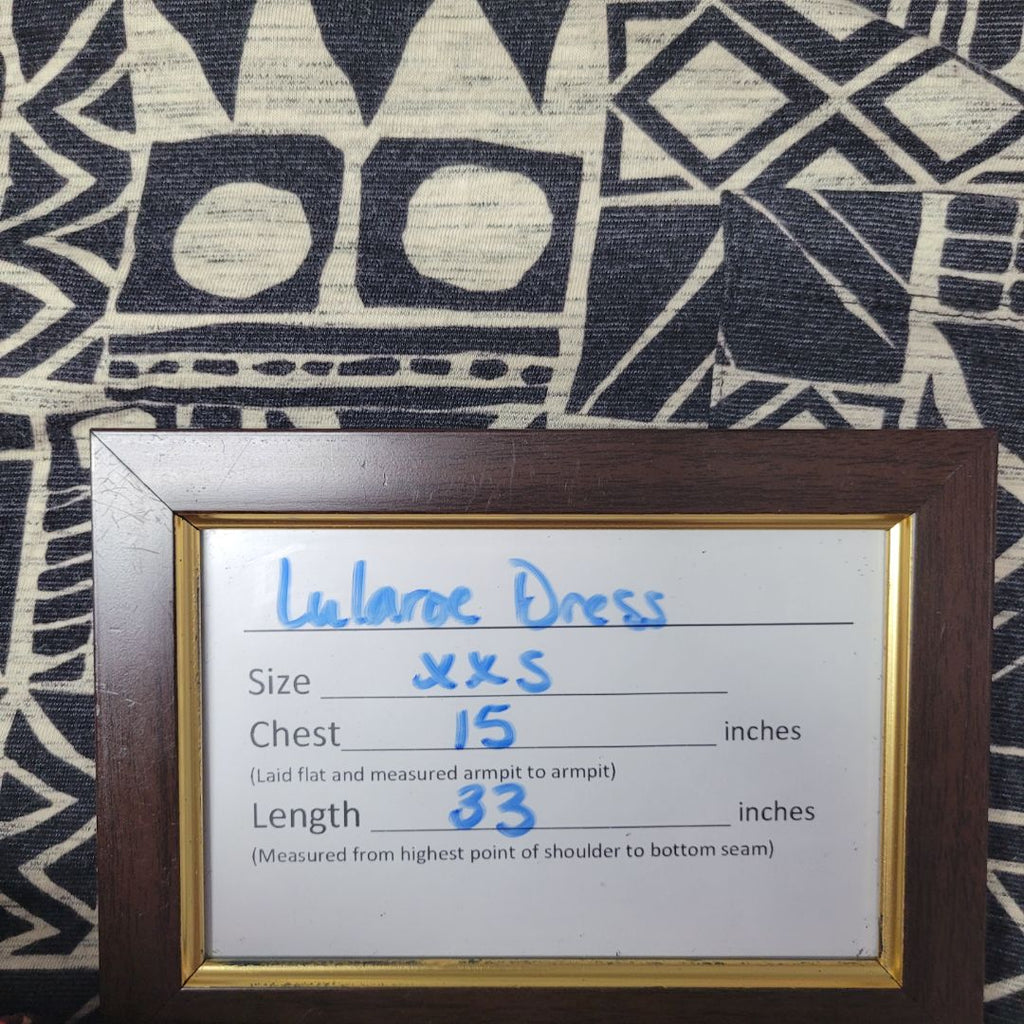 Lularoe Dress
Size xxs
Chest 15 inches
(Laid flat and measured armpit to armpit)
Length 33 inches
(Measured from highest point of shoulder to bottom seam)